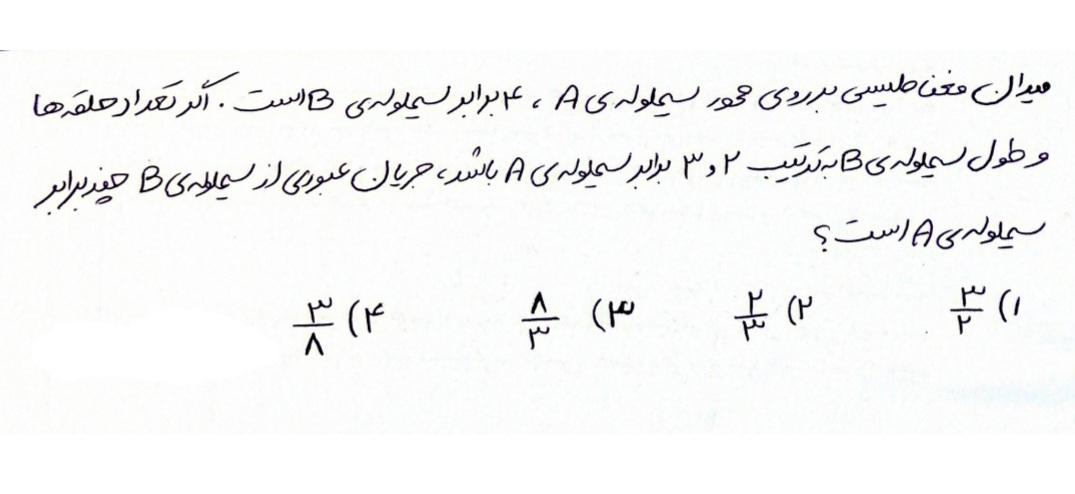 میدان مغناطیسی بر روی محور سیملوله‌ی A ، ۴ برابر سیملوله‌ی B است . اگر تعداد حلقه‌ها
و طول سیملوله‌ی B به ترتیب ۲ و ۳ برابر سیملوله‌ی A باشد، جریان عبوری از سیملوله‌ی B چند برابر
سیملوله‌ی A است ؟
۱) ۳/۲ ۲) ۲/۳ ۳) ۸/۳ ۴) ۳/۸